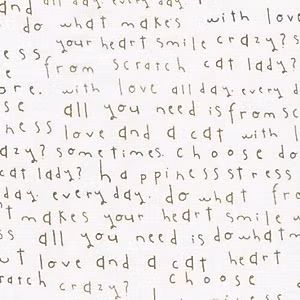 and all day. every day
do what makes with love
your heart smile crazy? s
ess from scratch cat lady?
ore. with love all day. every d
se all you need is from scr
ness love and a cat with l
azy? sometimes. choose do
cat lady? happiness stress
day. every day. do what fro
't makes your heart smile w
ss all you need is do what m
ut love and a cat heart
ratch crazy? choose